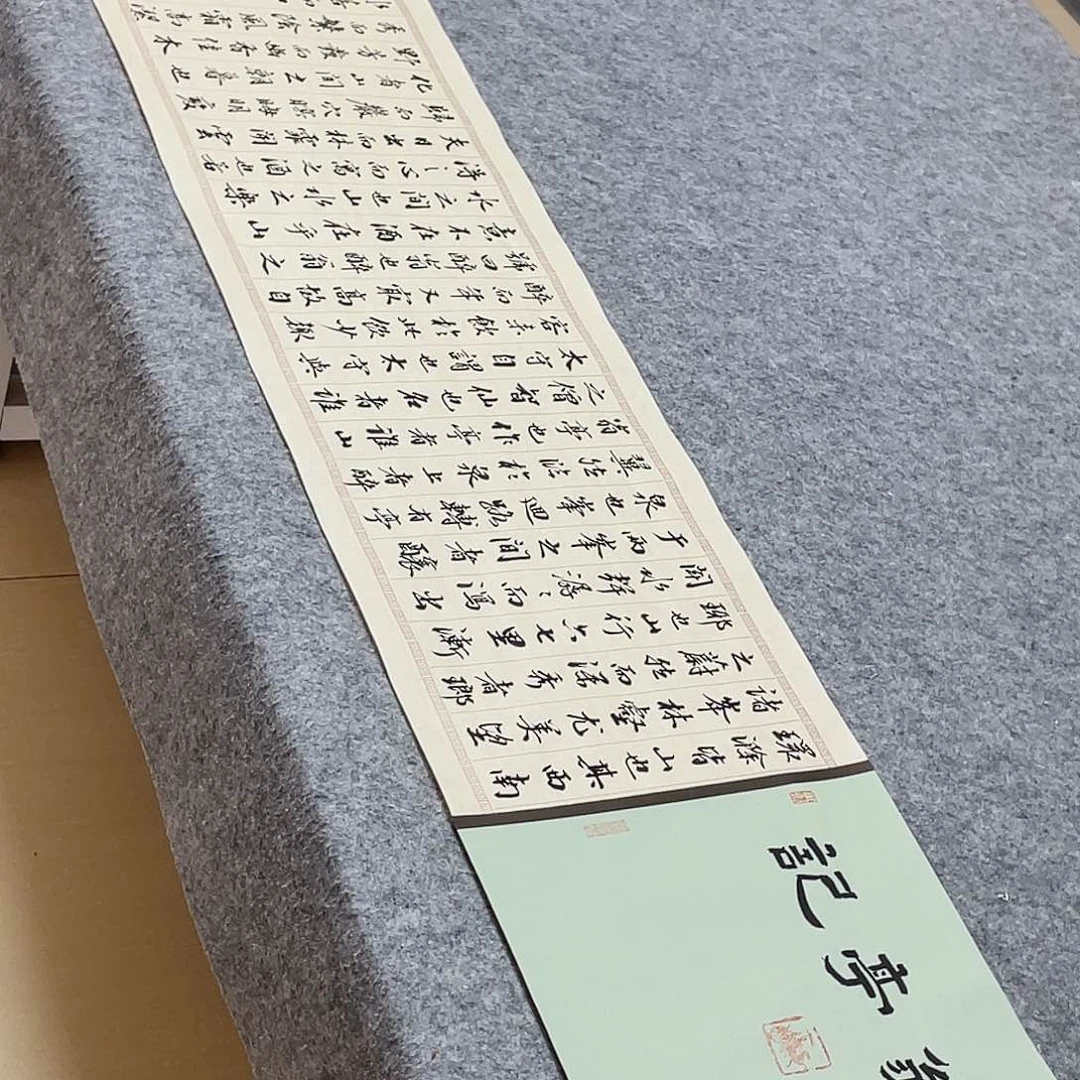 亭記
環滁皆山也其西南
諸峯林壑尤美望
之蔚然而深秀者瑯
琊也山行六七里漸
聞水聲潺〻而瀉出
于兩峯之間者釀
泉也峯迴路轉有亭
翼然臨於泉上者醉
翁亭也作亭者誰山
之僧智仙也名者誰
太守自謂也太守與
客來飲於此飲少輒
醉而年又最高故自
號曰醉翁也醉翁之
意不在酒在乎山
水之間也山水之樂
得之心而寓之酒也若
夫日出而林霏開雲
歸而巖穴暝晦明變
化者山間之朝暮也
野芳發而幽香佳木
秀而繁陰風霜高